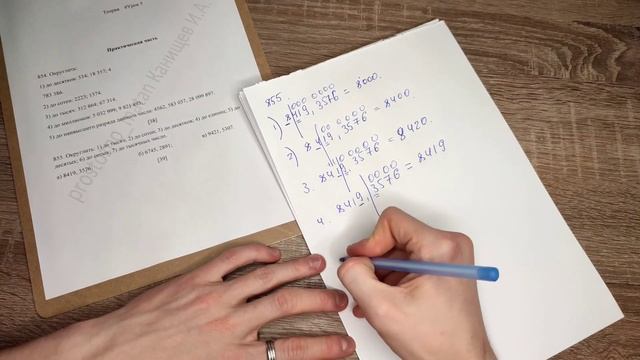 Теория #Урок 5
Практическая часть
854. Округлите:
1) до десятков: 534; 18 357; 4
783 386.
2) до сотен: 2223; 1374.
3) до тысяч: 312 864; 67 314.
4) до миллионов: 5 032 999; 9 821 893.
5) до наивысшего разряда данного числа: 4562, 583 037, 28 099 897.
[38]
855. Округлить: 1) до тысяч, 2) до сотен; 3) до десятков; 4) до единиц; 5) до
десятых; 6) до сотых; 7) до тысячных числа:
а) 8419, 3576; б) 6745, 2891; в) 9421, 5307.
[39]
Канищев И.А.
855.
000 0000
1) 8419, 3576 = 8000.
00 0000
2) 8419, 3576 = 8400.
0000
3. 8419, 3576 = 8420.
0000
4. 8419, 3576 = 8419